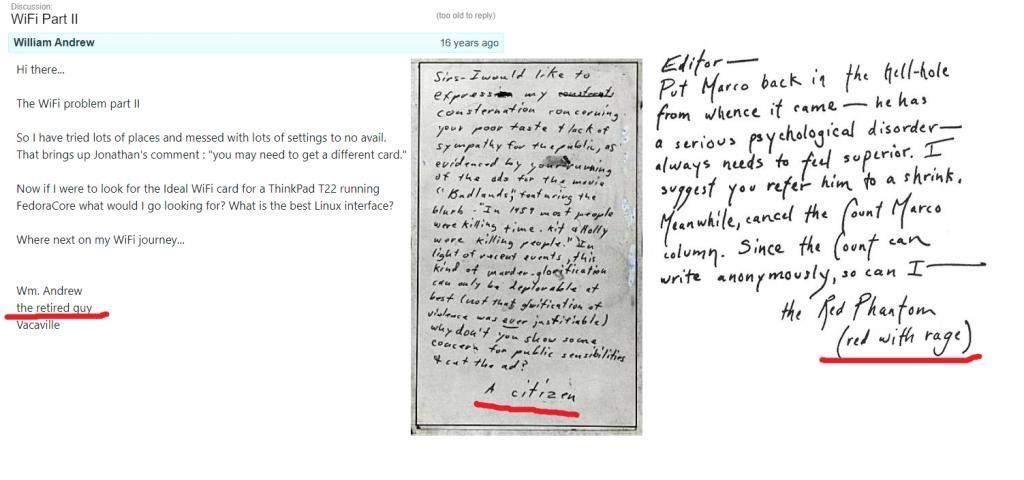 Discussion:
WiFi Part II
(too old to reply)
William Andrew
16 years ago
Hi there...
The WiFi problem part II
So I have tried lots of places and messed with lots of settings to no avail.
That brings up Jonathan's comment : "you may need to get a different card."
Now if I were to look for the Ideal WiFi card for a ThinkPad T22 running
FedoraCore what would I go looking for? What is the best Linux interface?
Where next on my WiFi journey...
Wm. Andrew
the retired guy
Vacaville
Sirs- I would like to
express my
consternation concerning
your poor taste & lack of
sympathy for the public, as
evidenced by your running
of the ads for the movie
"Badlands," featuring the
blurb - "In 1959 most people
were killing time. Kit & Holly
were killing people." In
light of recent events, this
kind of murder-glorification
can only be deplorable at
best (not that glorification of
violence was ever justifiable)
why don't you show some
concern for public sensibilities
& cut the ad?
A citizen
Editor—
Put Marco back in the hell-hole
from whence it came — he has
a serious psychological disorder—
always needs to feel superior. I
suggest you refer him to a shrink.
Meanwhile, cancel the Count Marco
column. Since the Count can
write anonymously, so can I—
the Red Phantom
(red with rage)